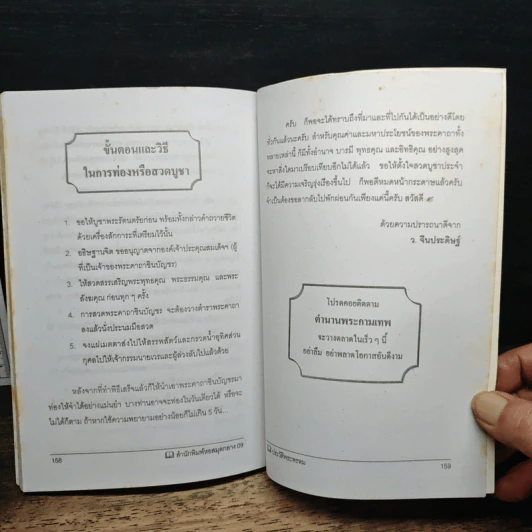 ขั้นตอนและวิธี
ในการท่องหรือสวดบูชา
1. ขอให้บูชาพระรัตนตรัยก่อน พร้อมทั้งกล่าวคำถวายชีวิต
ด้วยเครื่องสักการะที่เตรียมไว้นั้น
2. อธิษฐานจิต ขออนุญาตจากองค์เจ้าประคุณสมเด็จฯ (ผู้
ที่เป็นเจ้าของพระคาถาชินบัญชร)
3. ให้สวดสรรเสริญพระพุทธคุณ พระธรรมคุณ และพระ
สังฆคุณ ก่อนทุก ๆ ครั้ง
4. การสวดพระคาถาชินบัญชร จะต้องวางตำราพระคาถา
ลงแล้วนั่งประนมมือสวด
5. จงแผ่เมตตาส่งไปให้สรรพสัตว์และกรวดน้ำอุทิศส่วน
กุศลไปให้เจ้ากรรมนายเวรและผู้ล่วงลับไปแล้วด้วย
หลังจากที่ทำพิธีเสร็จแล้วก็ให้นำเอาพระคาถาชินบัญชรมา
ท่องให้จำได้อย่างแม่นยำ บางท่านอาจจะท่องในวันเดียวได้ หรือจะ
ไม่ได้ก็ตาม ถ้าหากใช้ความพยายามอย่างน้อยก็ไม่เกิน 5 วัน...
158
สำนักพิมพ์หอสมุดกลาง 09
ครับ ก็พอจะได้ทราบถึงที่มาและที่ไปกันได้เป็นอย่างดีโดย
ทั่วกันแล้วนะครับ สำหรับคุณค่าและมหาประโยชน์ของพระคาถาทั้ง
หลายเหล่านี้ ก็มีทั้งอำนาจ บารมี พุทธคุณ และอิทธิคุณ อย่างสูงสุด
จะหาสิ่งใดมาเปรียบเทียบอีกไม่ได้แล้ว ขอให้ตั้งใจสวดบูชาประจำ
ก็จะได้มีความเจริญรุ่งเรืองขึ้นไป ก็พอดีหมดหน้ากระดาษแล้วครับ
จำเป็นต้องขอลากลับไปพักผ่อนกันเพียงแค่นี้ครับ สวัสดี ๙
ด้วยความปรารถนาดีจาก
ว. จีนประดิษฐ์
โปรดคอยติดตาม
ตำนานพระกามเทพ
จะวางตลาดในเร็ว ๆ นี้
อย่าลืม อย่าพลาดโอกาสอันดีงาม
159